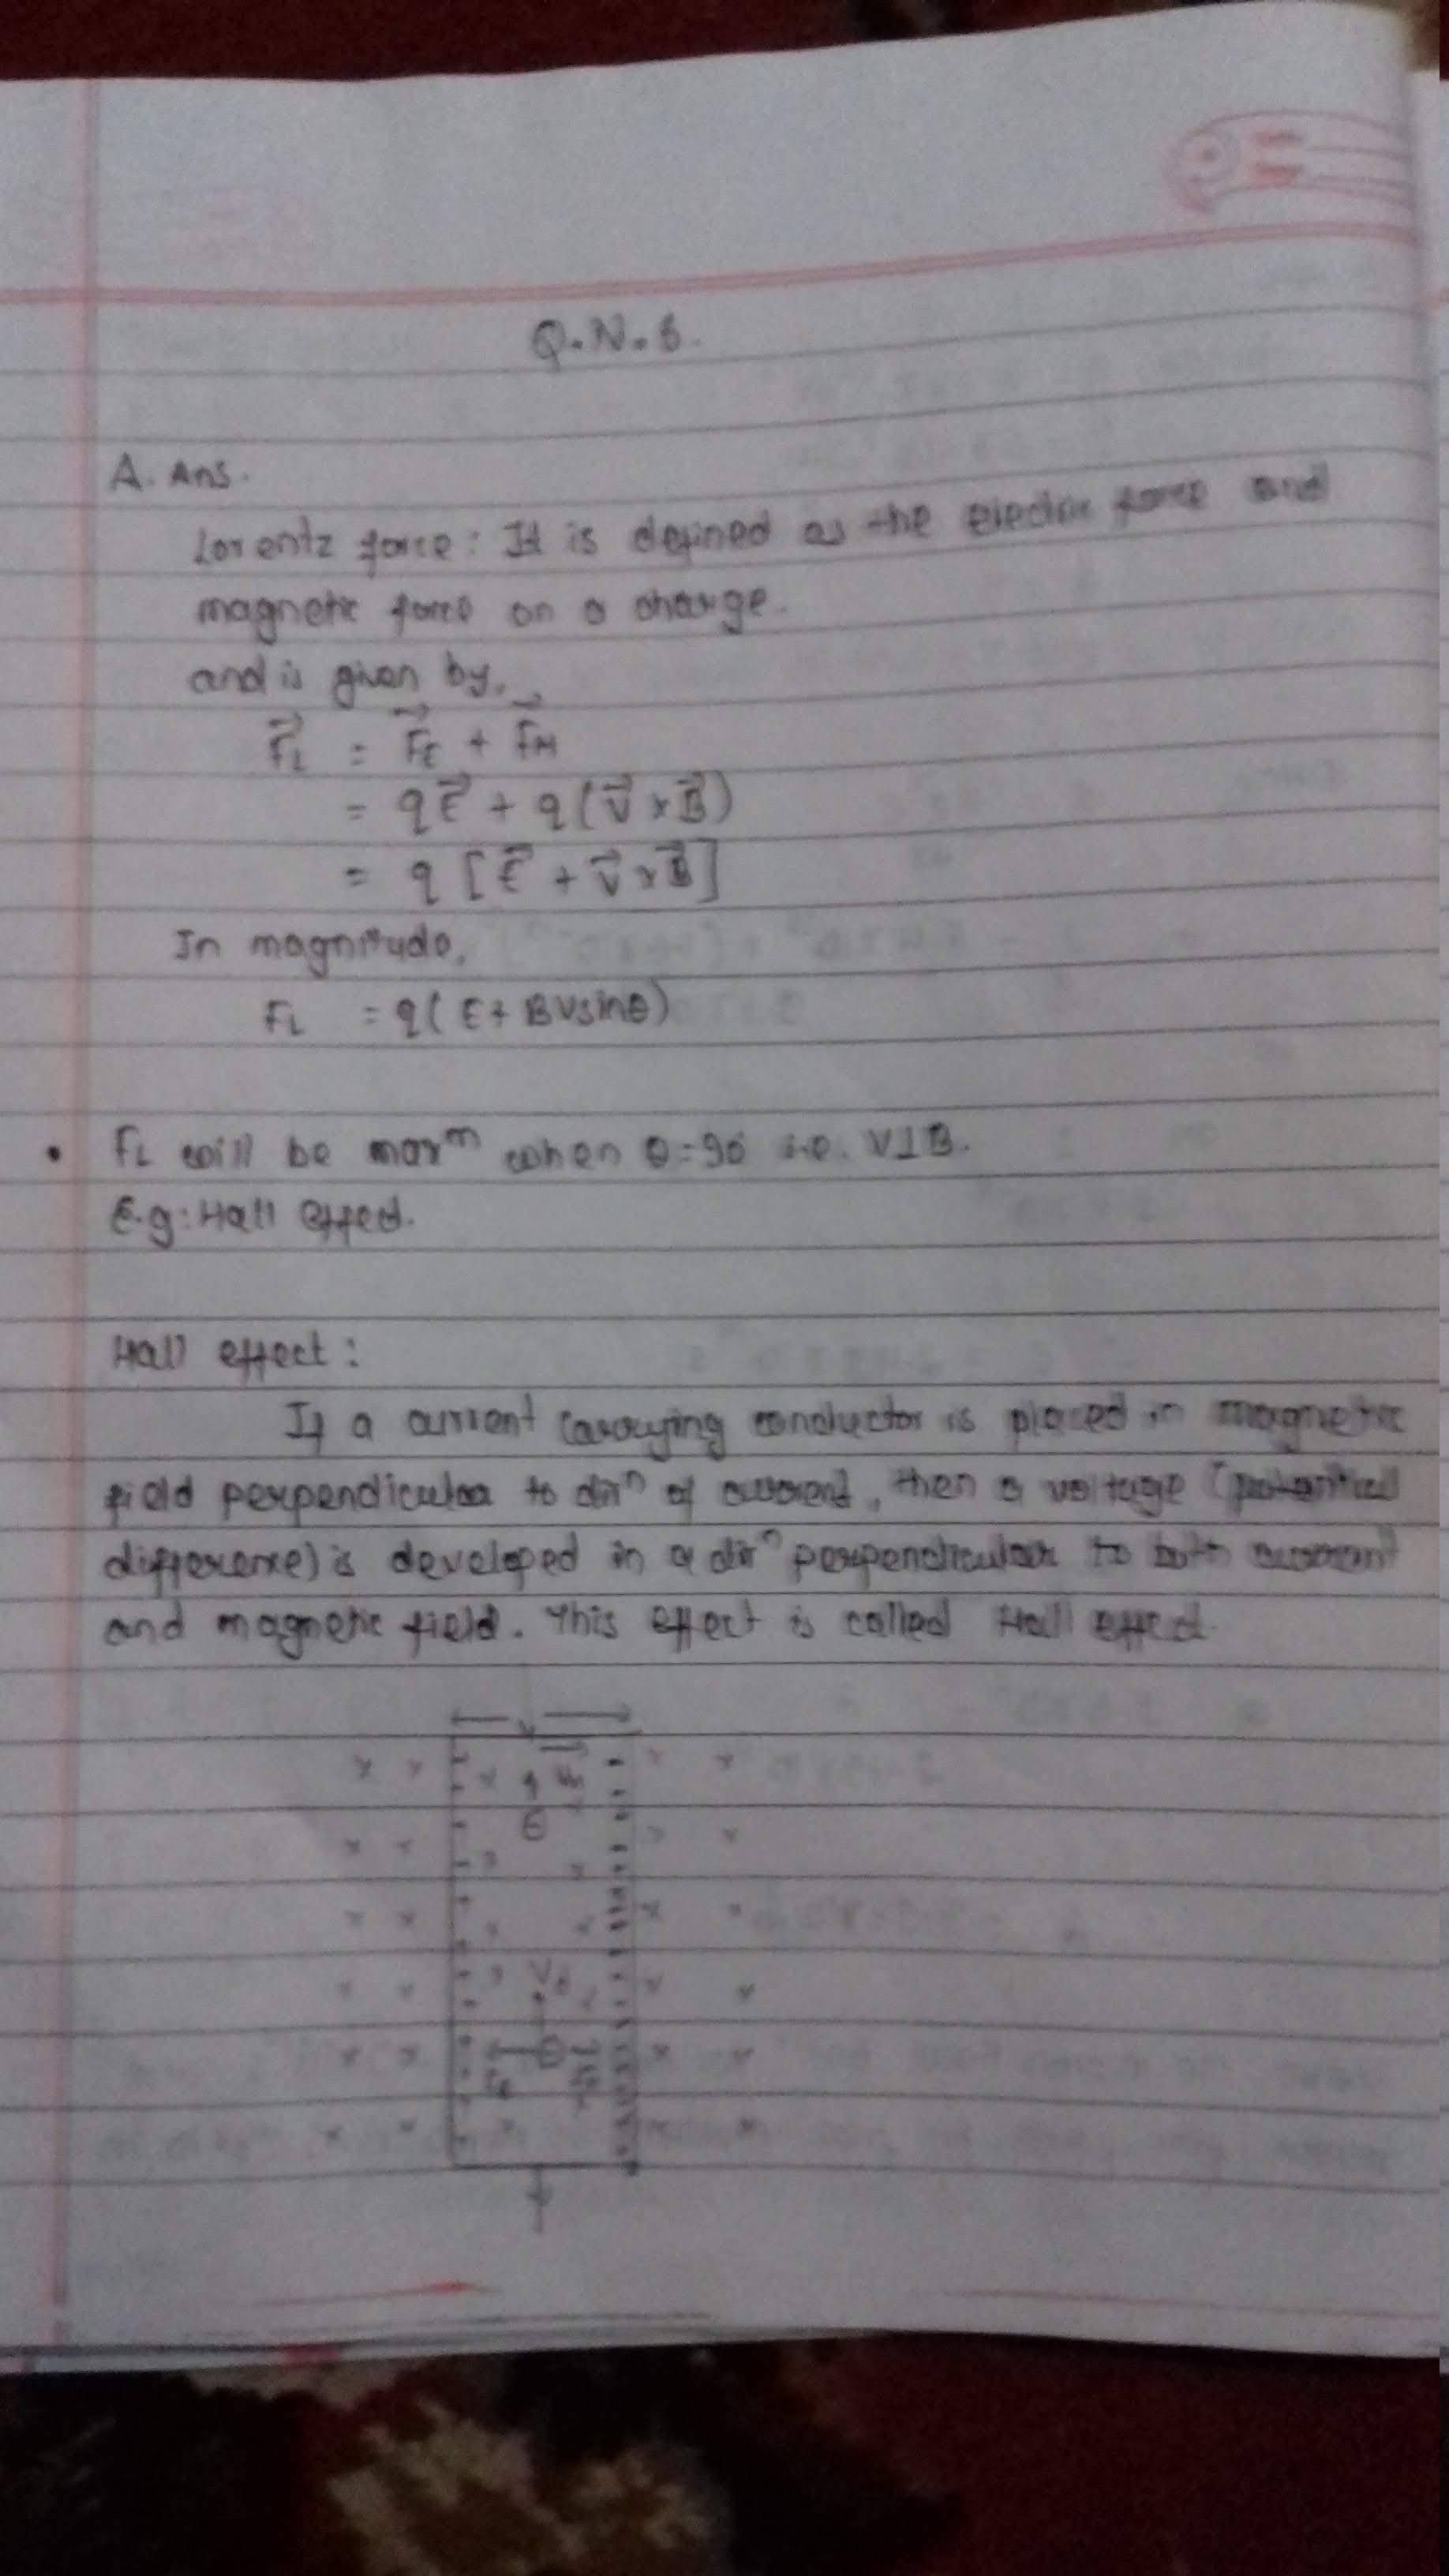 Q.N.6.
A. Ans.
Lorentz force: It is defined as the electric force and
magnetic force on a charge.
and is given by,
F⃗L = F⃗E + F⃗M
= qE⃗ + q(V⃗ × B⃗)
= q [E⃗ + V⃗ × B⃗]
In magnitude,
FL = q(E + BVsinθ)
• FL will be maxᵐ when θ=90 i.e. V⊥B.
E.g: Hall effect.
Hall effect:
If a current carrying conductor is placed in magnetic
field perpendicular to dirⁿ of current, then a voltage (potential
difference) is developed in a dirⁿ perpendicular to both current
and magnetic field. This effect is called Hall effect.
Vd